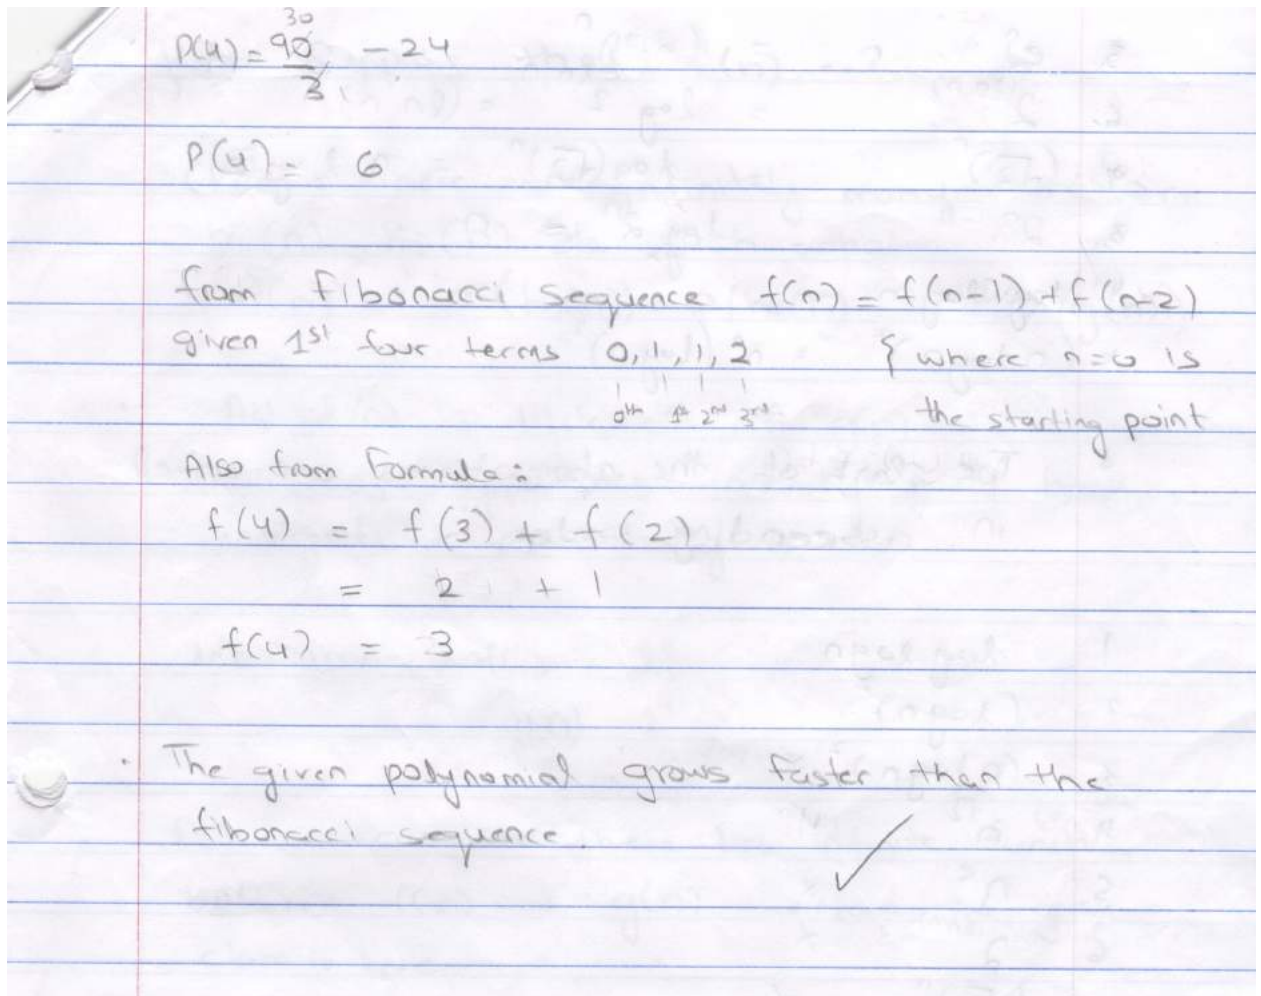 30
P(4) = 90/3 - 24
P(4) = 6
from fibonacci sequence f(n) = f(n-1) + f(n-2)
given 1st four terms 0, 1, 1, 2 { where n=0 is
0th 1st 2nd 3rd the starting point
Also from Formula:
f(4) = f(3) + f(2)
= 2 + 1
f(4) = 3
The given polynomial grows faster than the
fibonacci sequence.